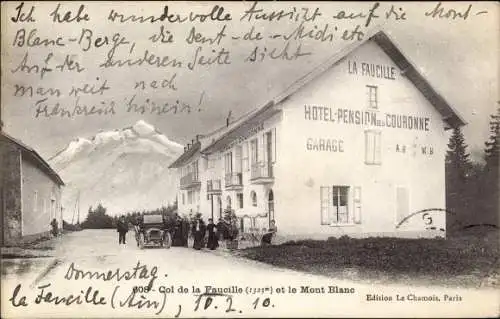 Ich habe wundervolle Aussicht auf die Mont-
Blanc-Berge, die Dent-de-Midi etc.
Auf der anderen Seite sieht
man weit nach
Frankreich hinein!
LA FAUCILLE
HÔTEL-PENSION DE LA COURONNE
GARAGE
Donnerstag
la Faucille (Ain), 10.2.10.
608 - Col de la Faucille (1323m) et le Mont Blanc
Edition Le Chamois, Paris